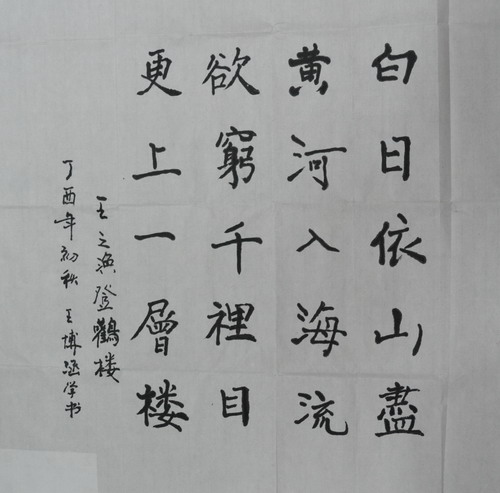 白日依山盡
黄河入海流
欲窮千裡目
更上一層楼
王之渙登鸛楼
丁酉年初秋 王博涵学书